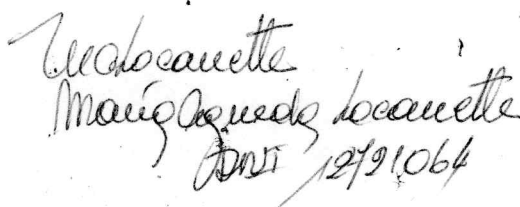 MALocanette
María Agueda Locanette
DNI 12791064